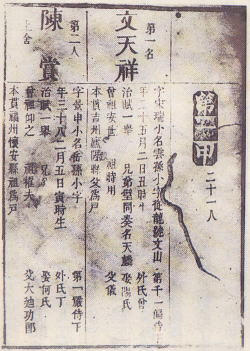 第一甲 二十一人
第一名
文天祥
字宋瑞小名雲孫小字從龍 文山 第千一 偏侍下
年二十五月二日丑時生 外氏曾
治賦一舉 兄弟 名天麟 娶陽氏
曾祖安世 祖時用 父儀
本貫吉州廬陵縣父爲戶
第二人
陳賞
上舍
字景申小名岳孫小字 第一 嚴侍下
年三十八二月五日寅時生 外氏丁
治賦一舉 兄 娶何氏
曾祖仰之 父大廸功郎
本貫福州懷安縣祖爲戶